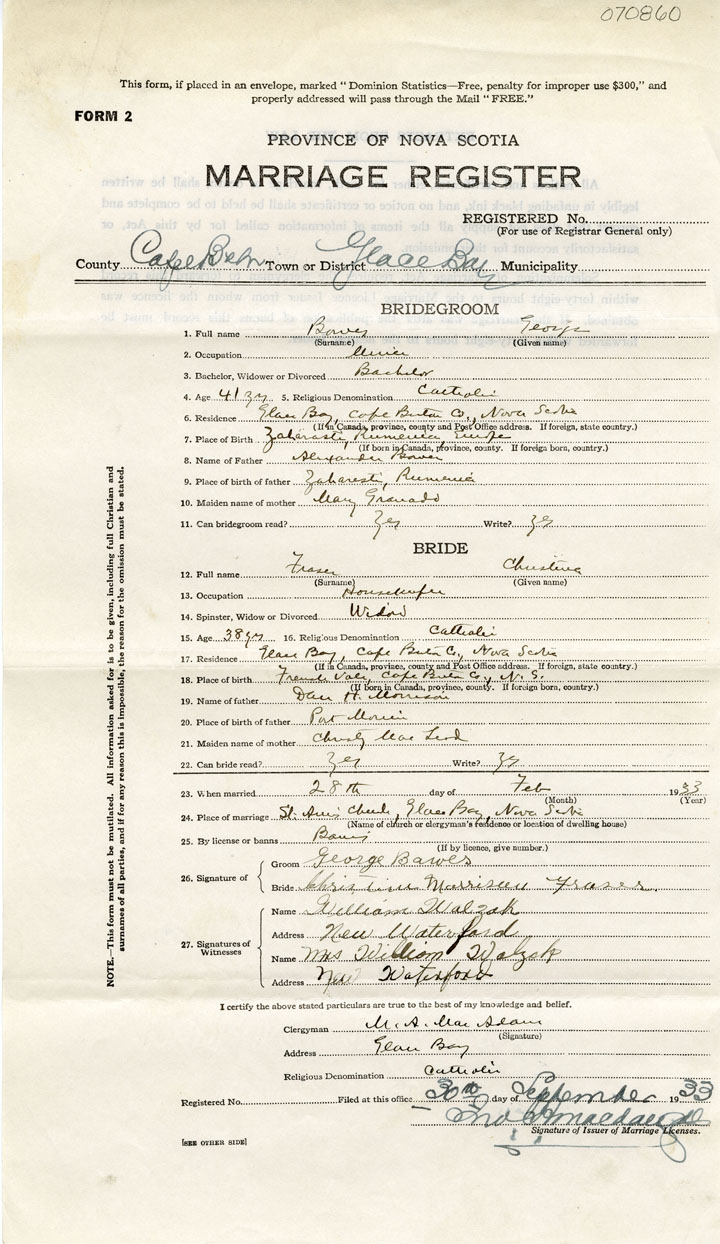 070860
This form, if placed in an envelope, marked "Dominion Statistics—Free, penalty for improper use $300," and
properly addressed will pass through the Mail "FREE."
FORM 2
PROVINCE OF NOVA SCOTIA
MARRIAGE REGISTER
REGISTERED No.
(For use of Registrar General only)
County Cape Breton Town or District Glace Bay Municipality
BRIDEGROOM
1. Full name Bower George
(Surname) (Given name)
2. Occupation Miner
3. Bachelor, Widower or Divorced Bachelor
4. Age 41 yrs 5. Religious Denomination Catholic
6. Residence Glace Bay, Cape Breton Co., Nova Scotia
(If in Canada, province, county and Post Office address. If foreign, state country.)
7. Place of Birth Zaharesti, Rumenia, Europe
(If born in Canada, province, county. If foreign born, country.)
8. Name of Father Alexander Bower
9. Place of birth of father Zaharesti, Rumenia
10. Maiden name of mother Mary Granado
11. Can bridegroom read? Yes Write? Yes
BRIDE
12. Full name Fraser Christina
(Surname) (Given name)
13. Occupation Housekeeper
14. Spinster, Widow or Divorced Widow
15. Age 38 yrs 16. Religious Denomination Catholic
17. Residence Glace Bay, Cape Breton Co., Nova Scotia
(If in Canada, province, county and Post Office address. If foreign, state country.)
18. Place of birth French Vale, Cape Breton Co., N. S.
(If born in Canada, province, county. If foreign born, country.)
19. Name of father Dan H. Morrison
20. Place of birth of father Port Morien
21. Maiden name of mother Christy Mac Leod
22. Can bride read? Yes Write? Yes
23. When married 28th day of Feb 1933
(Month) (Year)
24. Place of marriage St. Ann's Church, Glace Bay, Nova Scotia
(Name of church or clergyman's residence or location of dwelling house)
25. By license or banns Banns
(If by licence, give number.)
26. Signature of Groom George Bawer
Bride Christina Morrison Fraser
27. Signatures of Witnesses
Name William Walzak
Address New Waterford
Name Mrs William Walzak
Address New Waterford
I certify the above stated particulars are true to the best of my knowledge and belief.
Clergyman M. A. Mac Adam
(Signature)
Address Glace Bay
Religious Denomination Catholic
Registered No. Filed at this office 30th day of September 1933
Signature of Issuer of Marriage Licenses.
[SEE OTHER SIDE]
NOTE.—This form must not be mutilated. All information asked for is to be given, including full Christian and
surnames of all parties, and if for any reason this is impossible, the reason for the omission must be stated.